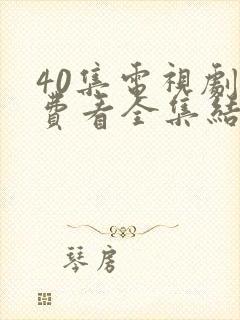 40集電視劇
費看全集結
琴房